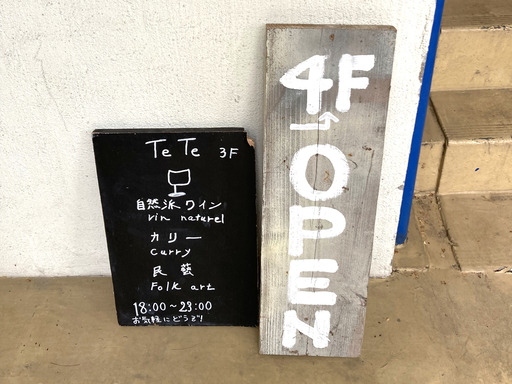 TeTe 3F
自然派ワイン
vin naturel
カリー
curry
民藝
Folk art
18:00~23:00
お気軽にどうぞ!
4F
OPEN